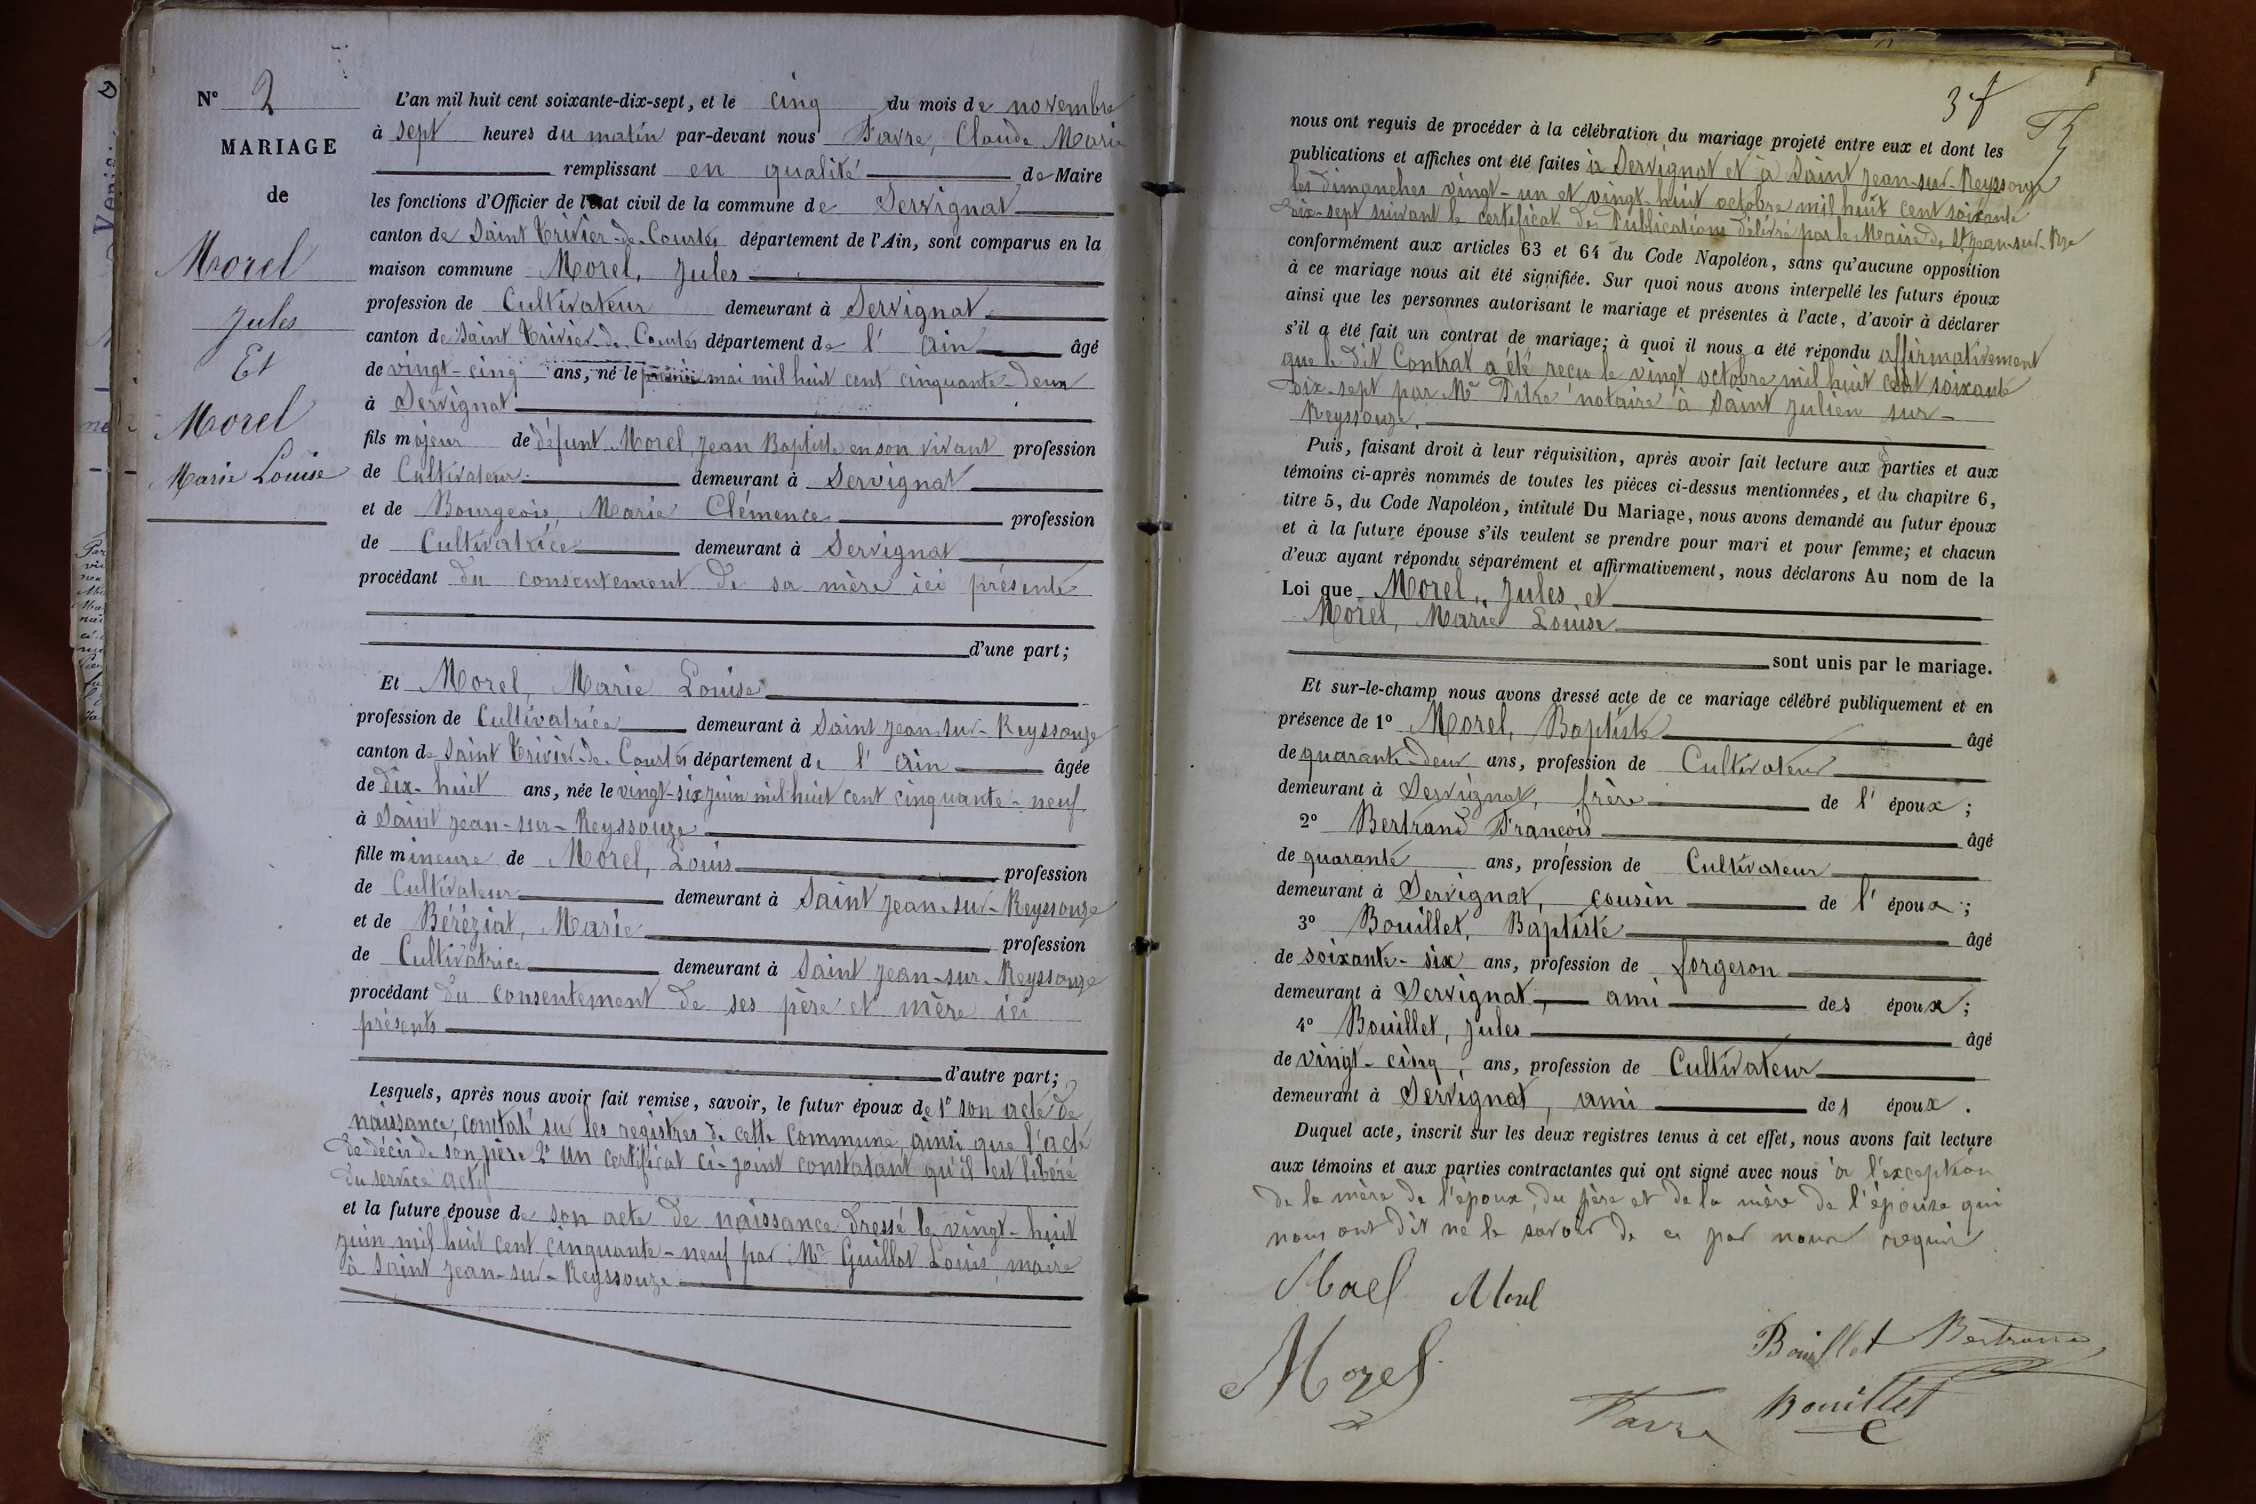 N° 2
MARIAGE
de
Morel
Jules
Et
Morel
Marie Louise
L'an mil huit cent soixante-dix-sept, et le cinq du mois de novembre
à sept heures du matin par-devant nous Favre, Claude Marie
remplissant en qualité de Maire
les fonctions d'Officier de l'état civil de la commune de Servignat
canton de Saint Trivier-de-Courtes département de l'Ain, sont comparus en la
maison commune Morel, Jules
profession de Cultivateur demeurant à Servignat
canton de Saint Trivier-de-Courtes département de l'Ain âgé
de vingt-cinq ans, né le premier mai mil huit cent cinquante-deux
à Servignat
fils majeur de défunt Morel, Jean Baptiste en son vivant profession
de Cultivateur demeurant à Servignat
et de Bourgeois, Marie Clémence profession
de Cultivatrice demeurant à Servignat
procédant du consentement de sa mère ici présente
d'une part;
Et Morel, Marie Louise
profession de Cultivatrice demeurant à Saint Jean-sur-Reyssouze
canton de Saint Trivier-de-Courtes département de l'Ain âgée
de dix-huit ans, née le vingt-six juin mil huit cent cinquante-neuf
à Saint Jean-sur-Reyssouze
fille mineure de Morel, Louis profession
de Cultivateur demeurant à Saint Jean-sur-Reyssouze
et de Béréziat, Marie profession
de Cultivatrice demeurant à Saint Jean-sur-Reyssouze
procédant du consentement de ses père et mère ici
présents
d'autre part;
Lesquels, après nous avoir fait remise, savoir, le futur époux de 1° son acte de
naissance, constaté sur les registres de cette Commune, ainsi que l'acte
de décès de son père 2° un certificat ci-joint constatant qu'il est libéré
du service actif
et la future épouse de son acte de naissance dressé le vingt-huit
juin mil huit cent cinquante-neuf par Mr Guillot Louis, maire
à Saint Jean-sur-Reyssouze
nous ont requis de procéder à la célébration du mariage projeté entre eux et dont les
publications et affiches ont été faites à Servignat et à Saint Jean-sur-Reyssouze
les dimanches vingt-un et vingt-huit octobre mil huit cent soixante
dix-sept suivant le certificat des Publications délivré par le Maire de St Jean-sur-Rze
conformément aux articles 63 et 64 du Code Napoléon, sans qu'aucune opposition
à ce mariage nous ait été signifiée. Sur quoi nous avons interpellé les futurs époux
ainsi que les personnes autorisant le mariage et présentes à l'acte, d'avoir à déclarer
s'il a été fait un contrat de mariage; à quoi il nous a été répondu affirmativement
que le dit Contrat a été reçu le vingt octobre mil huit cent soixante
dix-sept par Mr Pitre notaire à Saint Julien sur-
Reyssouze.
Puis, faisant droit à leur réquisition, après avoir fait lecture aux parties et aux
témoins ci-après nommés de toutes les pièces ci-dessus mentionnées, et du chapitre 6,
titre 5, du Code Napoléon, intitulé Du Mariage, nous avons demandé au futur époux
et à la future épouse s'ils veulent se prendre pour mari et pour femme; et chacun
d'eux ayant répondu séparément et affirmativement, nous déclarons Au nom de la
Loi que Morel, Jules, et
Morel, Marie Louise
sont unis par le mariage.
Et sur-le-champ nous avons dressé acte de ce mariage célébré publiquement et en
présence de 1° Morel, Baptiste âgé
de quarante-deux ans, profession de Cultivateur
demeurant à Servignat, frère de l'époux;
2° Bertrand François âgé
de quarante ans, profession de Cultivateur
demeurant à Servignat, cousin de l'époux;
3° Bouillet, Baptiste âgé
de soixante-six ans, profession de forgeron
demeurant à Servignat, ami des époux;
4° Bouillet, Jules âgé
de vingt-cinq, ans, profession de Cultivateur
demeurant à Servignat, ami des époux.
Duquel acte, inscrit sur les deux registres tenus à cet effet, nous avons fait lecture
aux témoins et aux parties contractantes qui ont signé avec nous à l'exception
de la mère de l'époux, du père et de la mère de l'épouse qui
nous ont dit ne le savoir de ce par nous requis
Morel Morel
Morel
Bouillet Bertrand
Favre Bouillet